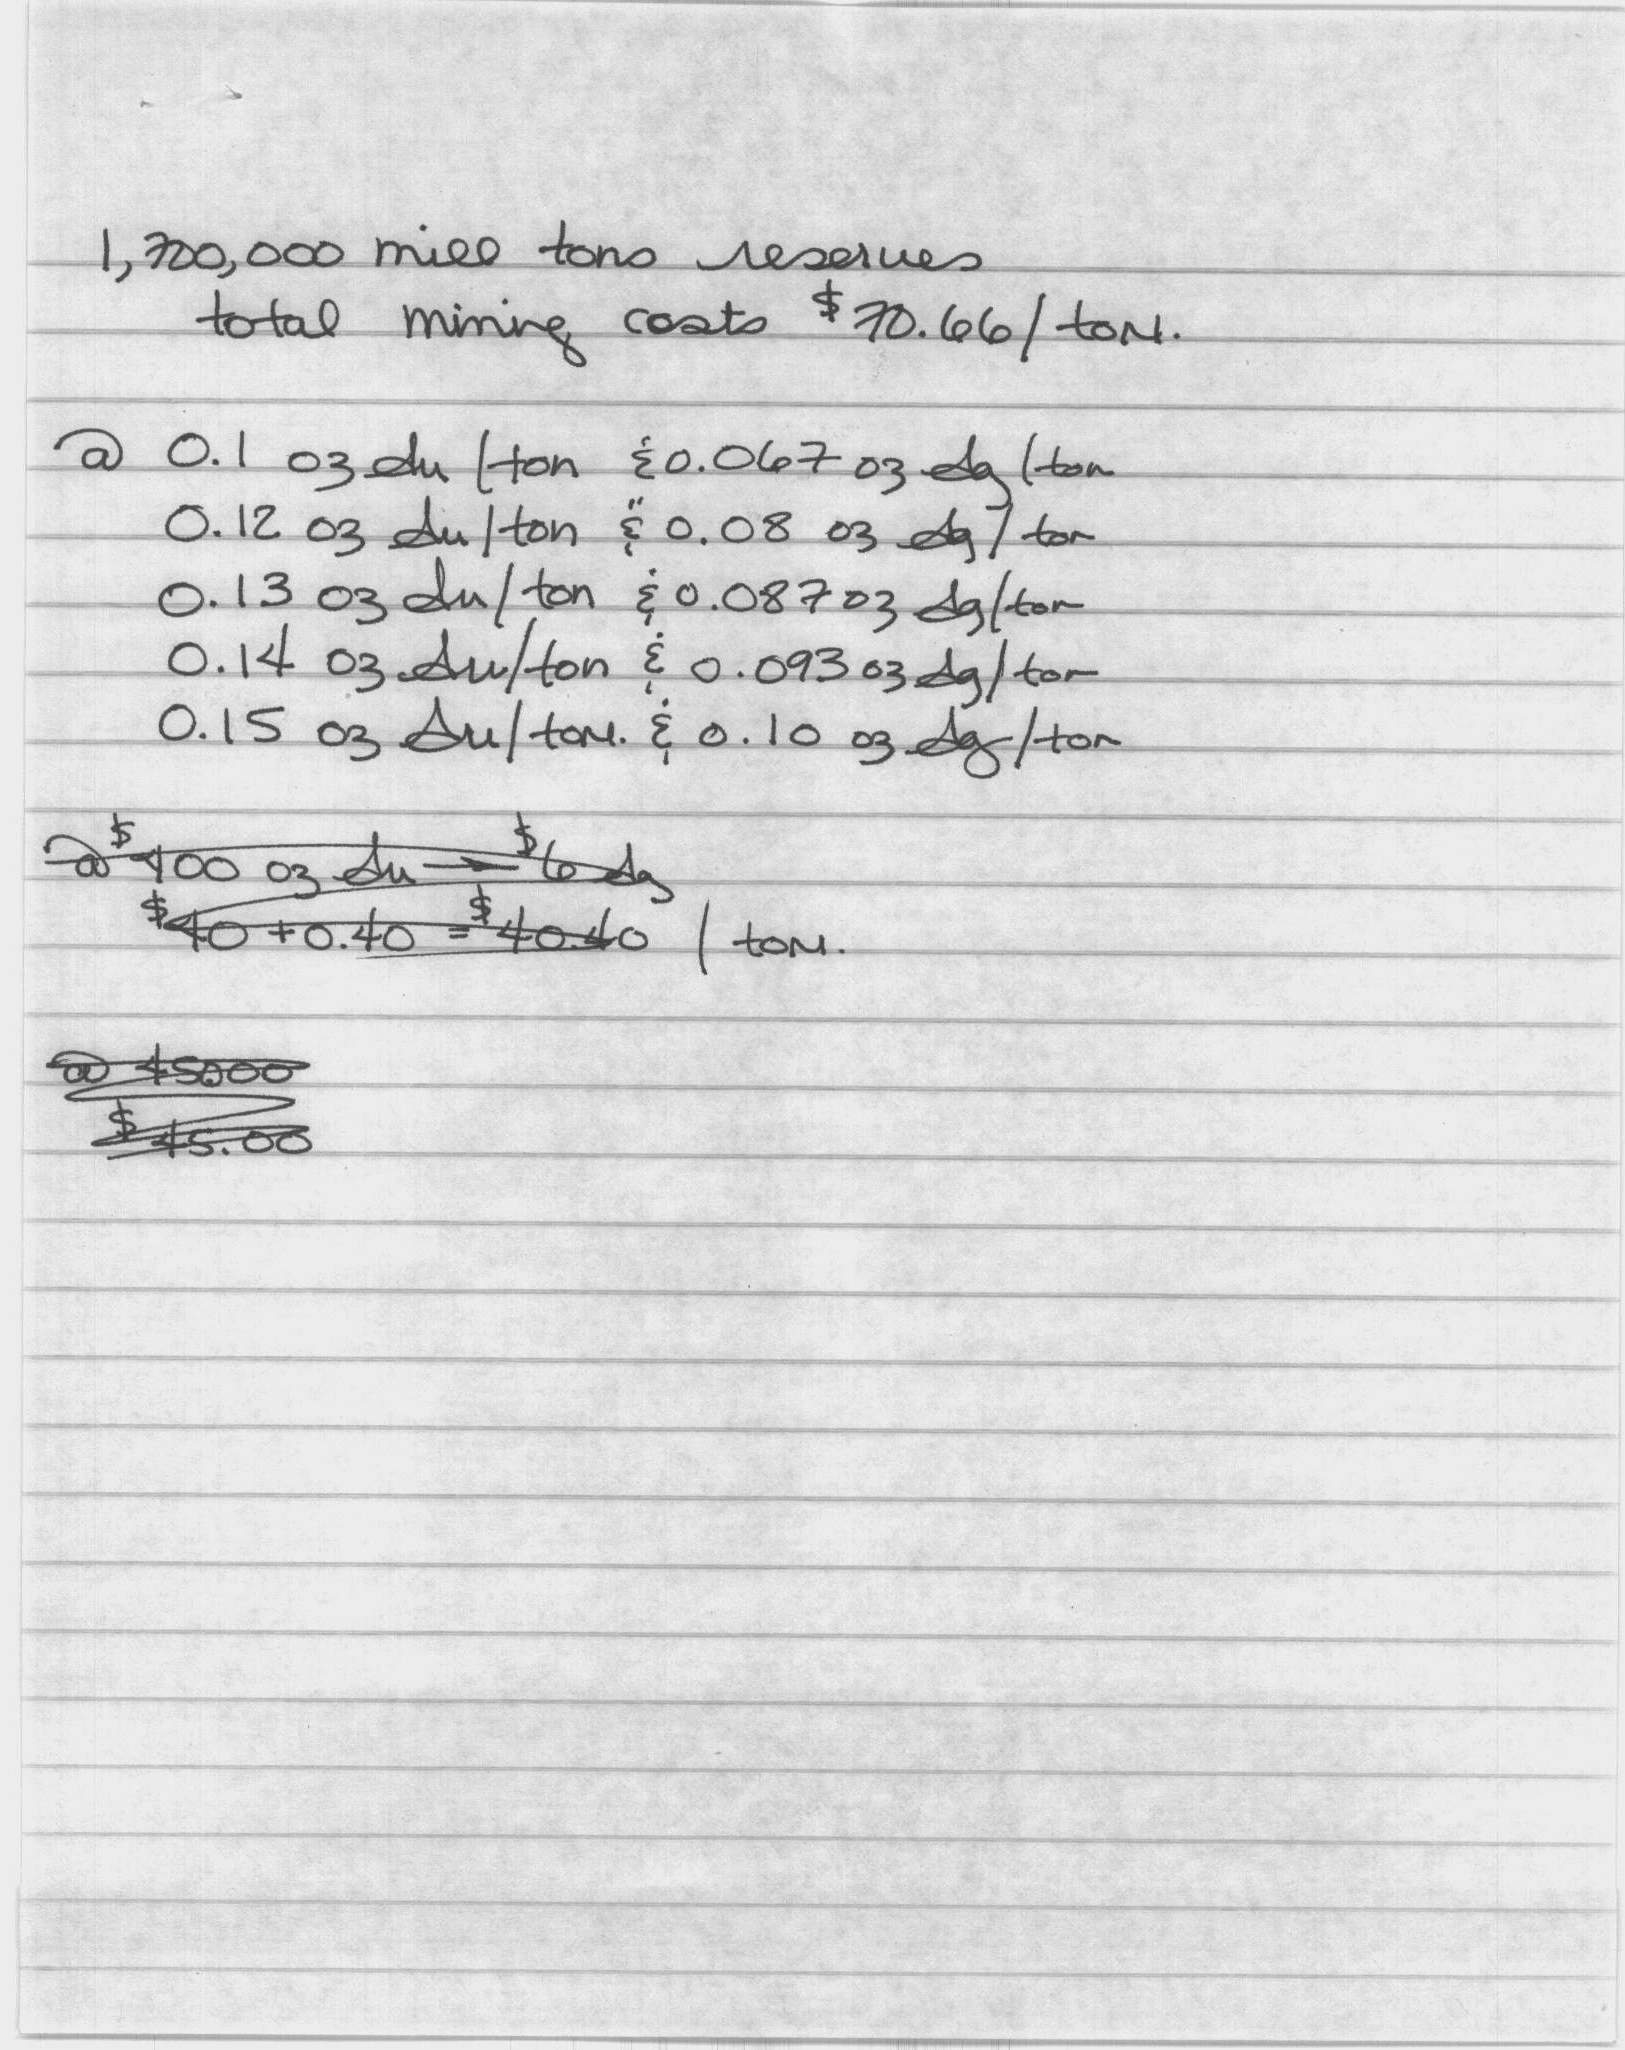 1,700,000 mill tons reserves
total mining costs $70.66/ton.
@ 0.1 oz Au/ton & 0.067 oz Ag/ton
0.12 oz Au/ton & 0.08 oz Ag/ton
0.13 oz Au/ton & 0.087 oz Ag/ton
0.14 oz Au/ton & 0.093 oz Ag/ton
0.15 oz Au/ton. & 0.10 oz Ag/ton
@ $400 oz Au — $6 Ag
$40 + 0.40 = $40.40 / ton.
@ 45.00
$45.00